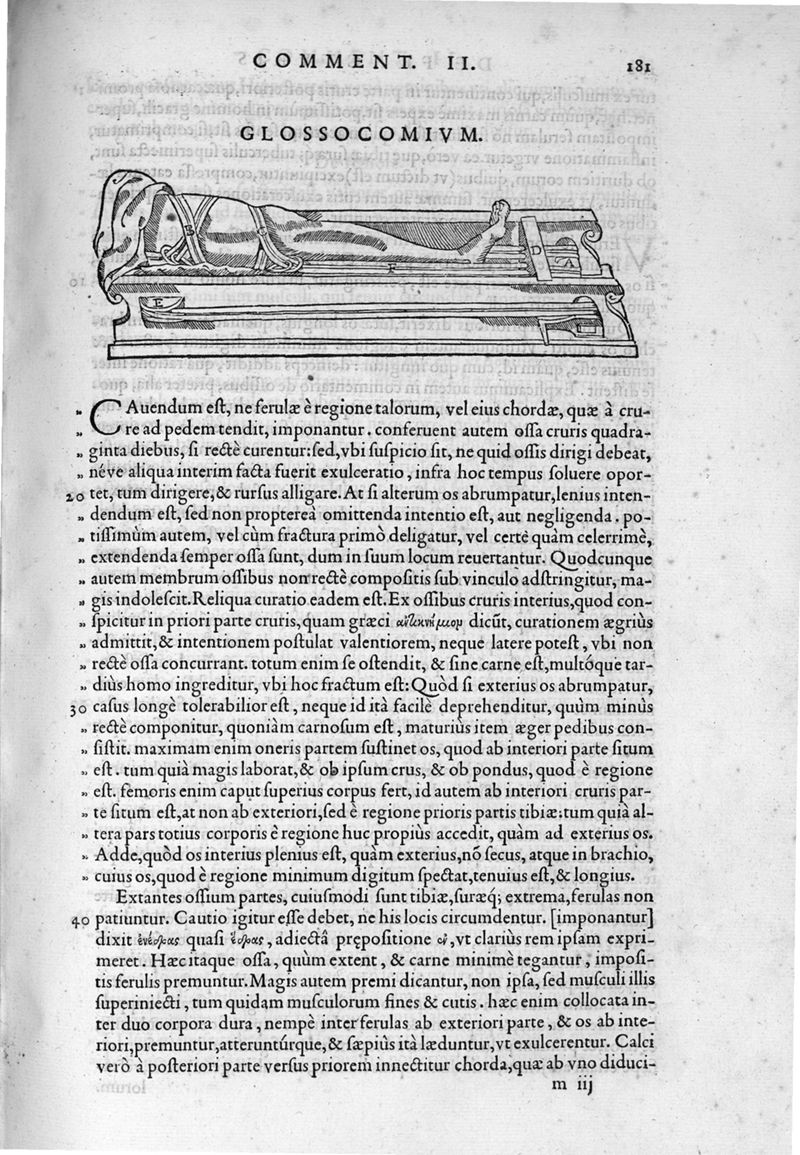 COMMENT. II. 181
GLOSSOCOMIVM.
B
C
D
F
E
„ CAuendum eſt, ne ferulæ è regione talorum, vel eius chordæ, quæ à cru-
„ re ad pedem tendit, imponantur. conferuent autem oſſa cruris quadra-
„ ginta diebus, ſi rectè curentur: ſed, vbi ſuſpicio ſit, ne quid oſſis dirigi debeat,
„ néve aliqua interim facta fuerit exulceratio, infra hoc tempus ſoluere opor-
20 tet, tum dirigere, & rurſus alligare. At ſi alterum os abrumpatur, lenius inten-
„ dendum eſt, ſed non proptereà omittenda intentio eſt, aut negligenda. po-
„ tiſſimùm autem, vel cùm fractura primò deligatur, vel certè quàm celerrimè,
„ extendenda ſemper oſſa ſunt, dum in ſuum locum reuertantur. Quodcunque
„ autem membrum oſſibus non rectè compoſitis ſub vinculo adſtringitur, ma-
„ gis indoleſcit. Reliqua curatio eadem eſt. Ex oſſibus cruris interius, quod con-
„ ſpicitur in priori parte cruris, quam græci ἀντικνήμιον dicūt, curationem ægriùs
„ admittit, & intentionem poſtulat valentiorem, neque latere poteſt, vbi non
„ rectè oſſa concurrant. totum enim ſe oſtendit, & ſine carne eſt, multóque tar-
„ diùs homo ingreditur, vbi hoc fractum eſt: Quòd ſi exterius os abrumpatur,
30 caſus longè tolerabilior eſt, neque id ità facilè deprehenditur, quùm minùs
„ rectè componitur, quoniàm carnoſum eſt, maturiùs item æger pedibus con-
„ ſiſtit. maximam enim oneris partem ſuſtinet os, quod ab interiori parte ſitum
„ eſt. tum quià magis laborat, & ob ipſum crus, & ob pondus, quod è regione
„ eſt. femoris enim caput ſuperius corpus fert, id autem ab interiori cruris par-
„ te ſitum eſt, at non ab exteriori, ſed è regione prioris partis tibiæ: tum quià al-
„ tera pars totius corporis è regione huc propiùs accedit, quàm ad exterius os.
„ Adde, quòd os interius plenius eſt, quàm exterius, nō ſecus, atque in brachio,
„ cuius os, quod è regione minimum digitum ſpectat, tenuius eſt, & longius.
Extantes oſſium partes, cuiuſmodi ſunt tibiæ, ſuræq; extrema, ferulas non
40 patiuntur. Cautio igitur eſſe debet, ne his locis circumdentur. [imponantur]
dixit ἐνέδρας quaſi ἕδρας, adiectâ prępoſitione ἐν, vt clariùs rem ipſam expri-
meret. Hæc itaque oſſa, quùm extent, & carne minimè tegantur, impoſi-
tis ferulis premuntur. Magis autem premi dicantur, non ipſa, ſed muſculi illis
ſuperiniecti, tum quidam muſculorum fines & cutis. hæc enim collocata in-
ter duo corpora dura, nempè inter ferulas ab exteriori parte, & os ab inte-
riori, premuntur, atteruntúrque, & ſæpiùs ità læduntur, vt exulcerentur. Calci
verò à poſteriori parte verſus priorem innectitur chorda, quæ ab vno diduci-
m iij